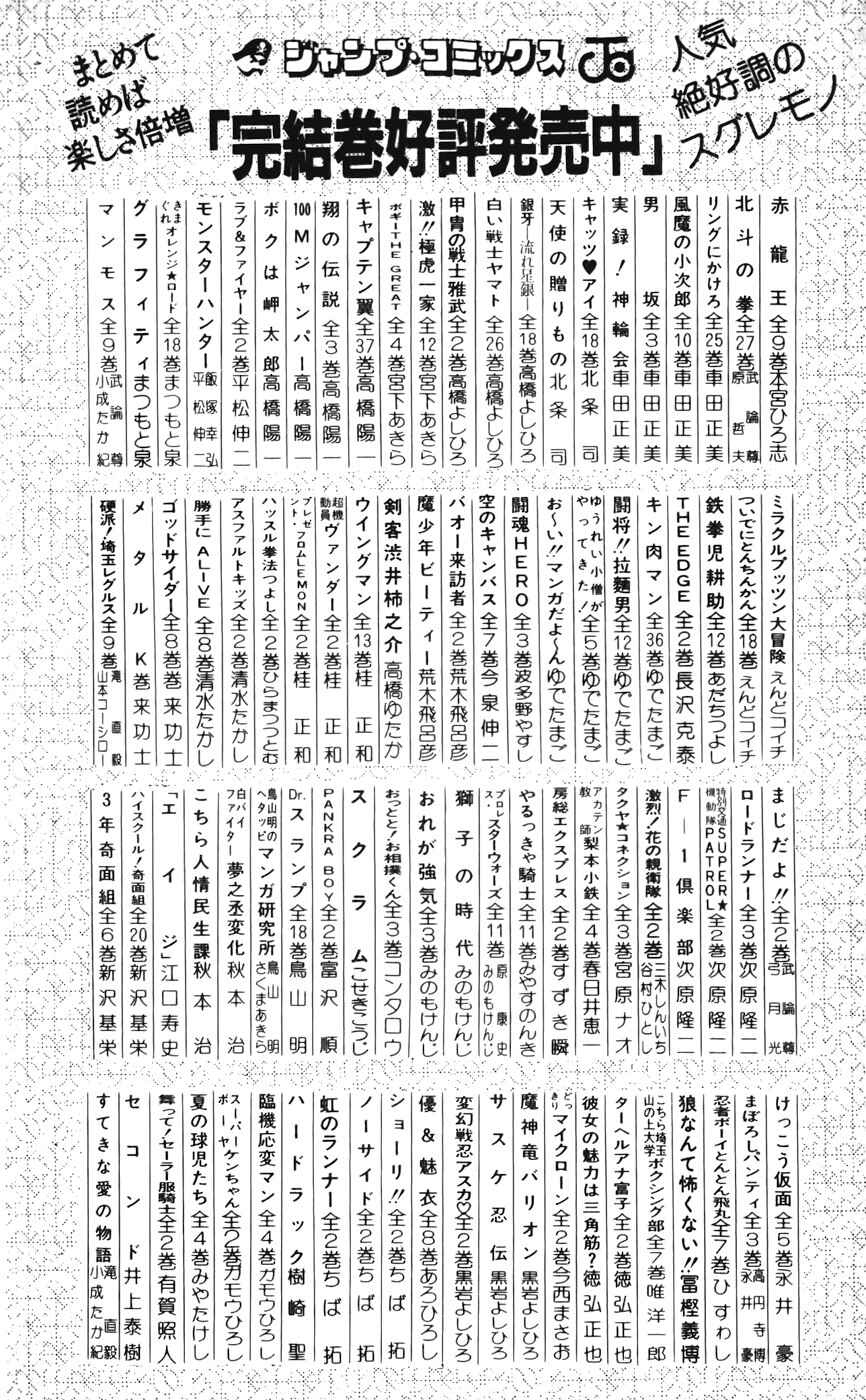 まとめて
読めば
楽しさ倍増
ジャンプ・コミックス
人気
絶好調の
スグレモノ
「完結巻好評発売中」
赤龍王全9巻本宮ひろ志
北斗の拳全27巻武論尊 原哲夫
リングにかけろ全25巻車田正美
風魔の小次郎全10巻車田正美
男坂全3巻車田正美
実録！神輪会車田正美
キャッツ♥アイ全18巻北条司
天使の贈りもの北条司
銀牙―流れ星銀―全18巻高橋よしひろ
白い戦士ヤマト全26巻高橋よしひろ
甲冑の戦士雅武全2巻高橋よしひろ
激!!極虎一家全12巻宮下あきら
ボギーTHE GREAT全4巻宮下あきら
キャプテン翼全37巻高橋陽一
翔の伝説全3巻高橋陽一
100Mジャンパー高橋陽一
ボクは岬太郎高橋陽一
ラブ&ファイヤー全2巻平松伸二
モンスターハンター飯塚幸弘 平松伸二
きまぐれオレンジ★ロード全18巻まつもと泉
グラフィティまつもと泉
マンモス全9巻武論尊 小成たか紀
ミラクルプッツン大冒険えんどコイチ
ついでにとんちんかん全18巻えんどコイチ
鉄拳児耕助全12巻あだちつよし
THE EDGE全2巻長沢克泰
キン肉マン全36巻ゆでたまご
闘将!!拉麵男全12巻ゆでたまご
ゆうれい小僧がやってきた！全5巻ゆでたまご
お～い!!マンガだよ～んゆでたまご
闘魂HERO全3巻波多野やすし
空のキャンバス全7巻今泉伸二
バオー来訪者全2巻荒木飛呂彦
魔少年ビーティー荒木飛呂彦
剣客渋井柿之介高橋ゆたか
ウイングマン全13巻桂正和
超機動員ヴァンダー全2巻桂正和
プレゼント・フロムLEMON全2巻桂正和
ハッスル拳法つよし全2巻ひらまつつとむ
アスファルトキッズ全2巻清水たかし
勝手にALIVE全8巻清水たかし
ゴッドサイダー全8巻巻来功士
メタルK巻来功士
硬派！埼玉レグルス全9巻滝直毅 山本コーシロー
まじだよ!!全2巻武論尊 弓月光
ロードランナー全3巻次原隆二
特別交通機動隊SUPER★PATROL全2巻次原隆二
F―1倶楽部次原隆二
激烈！花の親衛隊全2巻三木しんいち 谷村ひとし
タクヤ★コネクション全3巻宮原ナオ
アカテン教師梨本小鉄全4巻春日井恵一
房総エクスプレス全2巻すずき瞬
やるっきゃ騎士全11巻みやすのんき
プロレス・スターウォーズ全11巻原康史 みのもけんじ
獅子の時代みのもけんじ
おれが強気全3巻みのもけんじ
おっとと！お相撲くん全3巻コンタロウ
スクラムこせきこうじ
PANKRA BOY全2巻富沢順
Dr.スランプ全18巻鳥山明
鳥山明のヘタッピマンガ研究所鳥山明 さくまあきら
白バイファイター夢之丞変化秋本治
こちら人情民生課秋本治
「エイジ」江口寿史
ハイスクール！奇面組全20巻新沢基栄
3年奇面組全6巻新沢基栄
けっこう仮面全5巻永井豪
まぼろしパンティ全3巻高円寺博 永井豪
忍者ボーイとんとん飛丸全7巻ひすわし
狼なんて怖くない!!冨樫義博
こちら埼玉山の上大学ボクシング部全7巻唯洋一郎
ターヘルアナ富子全2巻徳弘正也
彼女の魅力は三角筋？徳弘正也
どっきりマイクローン全2巻今西まさお
魔神竜バリオン黒岩よしひろ
サスケ忍伝黒岩よしひろ
変幻戦忍アスカ♡全2巻黒岩よしひろ
優&魅衣全8巻あろひろし
ショーリ!!全2巻ちば拓
ノーサイド全2巻ちば拓
虹のランナー全2巻ちば拓
ハードラック樹崎聖
臨機応変マン全4巻ガモウひろし
スーパーボーヤケンちゃん全2巻ガモウひろし
夏の球児たち全4巻みやたけし
舞って！セーラー服騎士全2巻有賀照人
セコンド井上泰樹
すてきな愛の物語滝直毅 小成たか紀